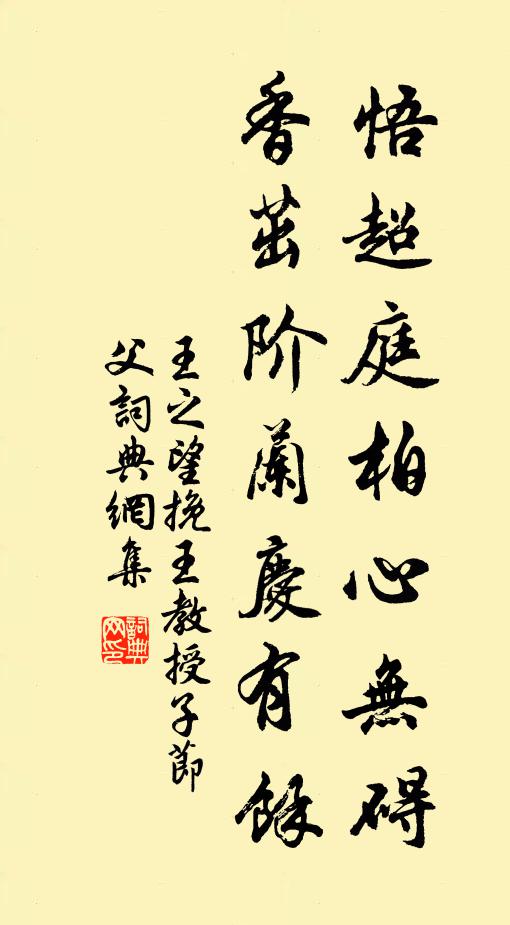 悟超庭柏心無碍
香茁阶蘭慶有餘
王之望挽王教授子節
父詞典網集
詞典網印